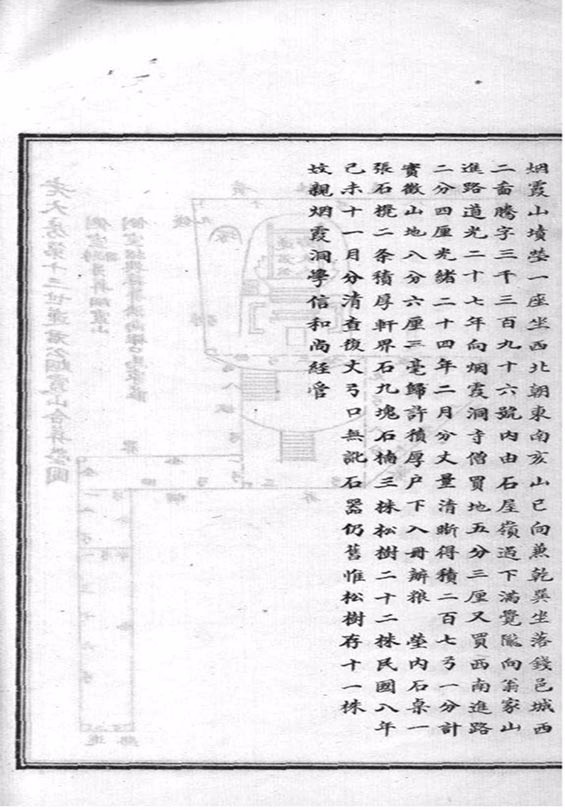 烟霞山墳塋一座坐西北朝東南亥山巳向兼乾巽坐落錢邑城西
二畬騰字三千三百九十六號內由石屋嶺過下滿覺隴向翁家山
進路道光二十七年向烟霞洞寺僧買地五分三厘又買西南進路
二分四厘光緒二十四年二月分丈量清晰得積二百七弓一分計
實徵山地八分六厘三毫歸許積厚戶下入冊辦粮 塋內石桌一
張石櫈二条積厚軒界石九塊石楠三株松樹二十二株民國八年
己未十一月分清查復丈弓口無訛石器仍舊惟松樹存十一株
坟親烟霞洞學信和尚經管